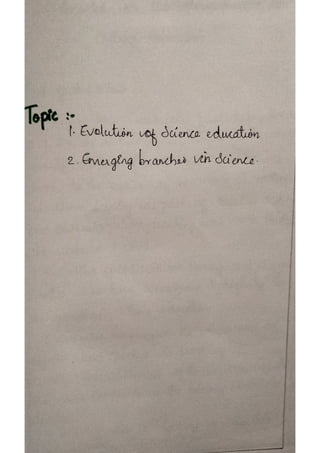 Topic :-
1. Evolution of Science education
2. Emerging branches in Science.